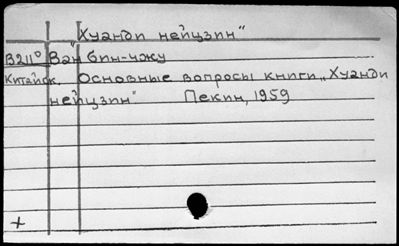 "Хуанди нейцзин"
В211⁰ Ван бин-чжу
Китайск. Основные вопросы книги „Хуанди
нейцзин" Пекин, 1959
+